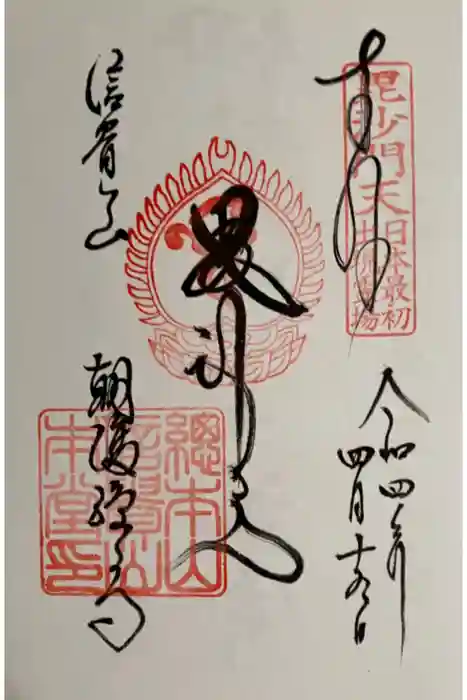 奉拝
毘沙門天
日本最初
出現霊場
令和四年
四月
毘沙門天
信貴山
朝護孫子寺
總本山
信貴山
本堂印